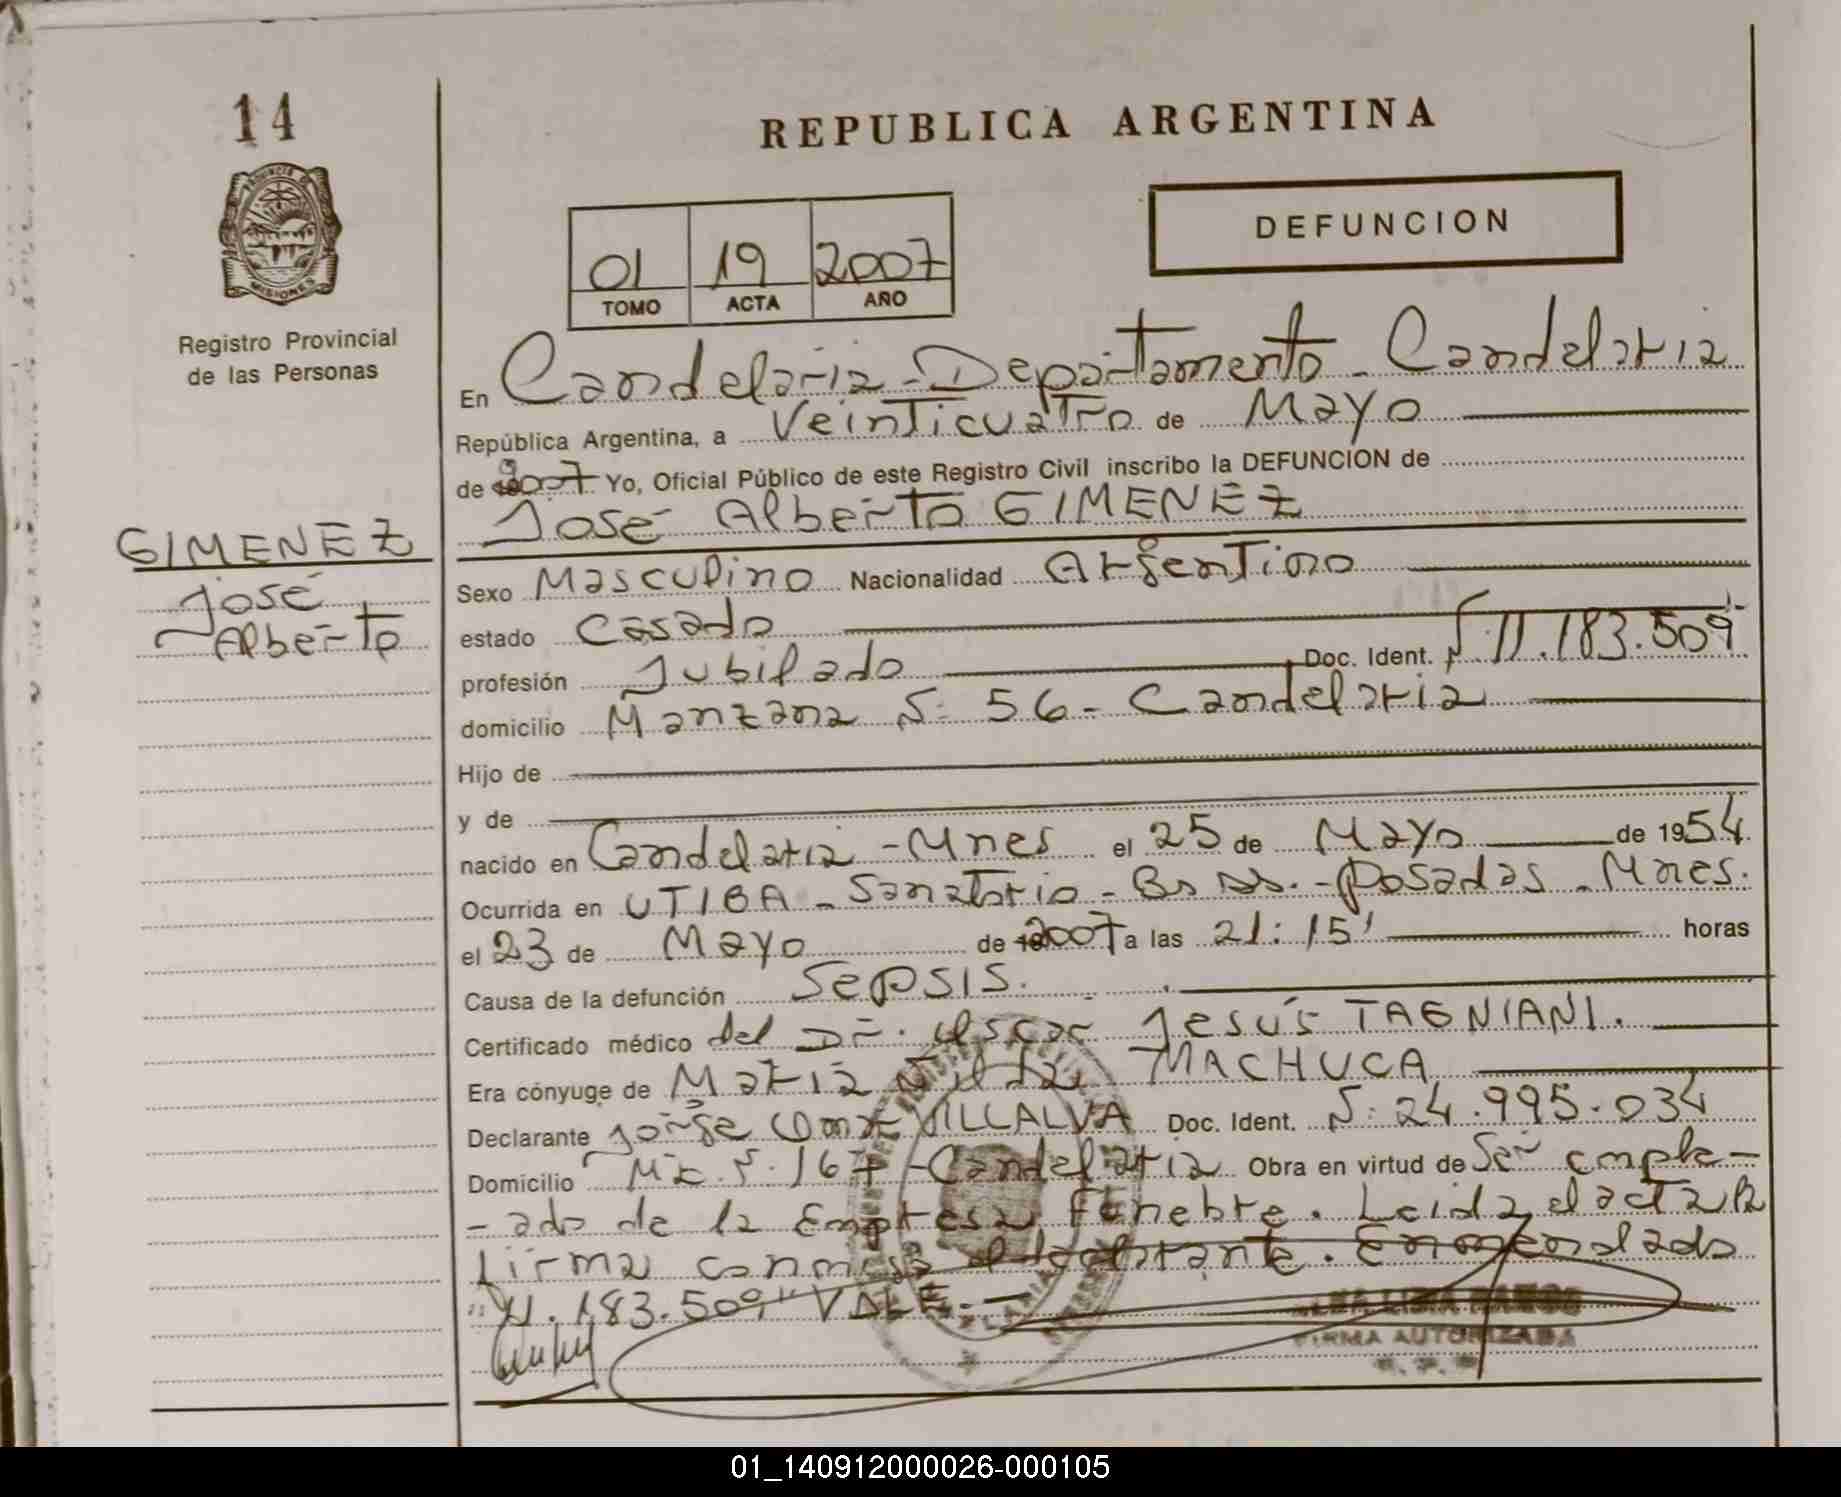 14
REPUBLICA ARGENTINA
DEFUNCION
01 19 2007
TOMO ACTA AÑO
MISIONES
Registro Provincial
de las Personas
En Candelaria - Departamento - Candelaria
República Argentina, a Veinticuatro de Mayo
de 2007 Yo, Oficial Público de este Registro Civil inscribo la DEFUNCION de
José Alberto GIMENEZ
GIMENEZ
José
Alberto
Sexo Masculino Nacionalidad Argentino
estado Casado
profesión Jubilado Doc. Ident. N: 11.183.509
domicilio Manzana N: 56 - Candelaria
Hijo de
y de
nacido en Candelaria - Mnes el 25 de Mayo de 1954.
Ocurrida en UTIBA - Sanatorio - Bs As. - Posadas - Mnes.
el 23 de Mayo de 2007 a las 21:15' horas
Causa de la defunción Sepsis.
Certificado médico del Dr. Oscar Jesús TAGNIANI.
Era cónyuge de María MACHUCA
Declarante Jorge Omar VILLALVA Doc. Ident. N: 24.995.034
Domicilio Mz. N: 167 - Candelaria Obra en virtud de Ser emple-
- ado de la Empresa Fúnebre. Leida el acta la
firma conmigo el declarante. Enmendado
"11.183.509" VALE. -
FIRMA AUTORIZADA
01_140912000026-000105